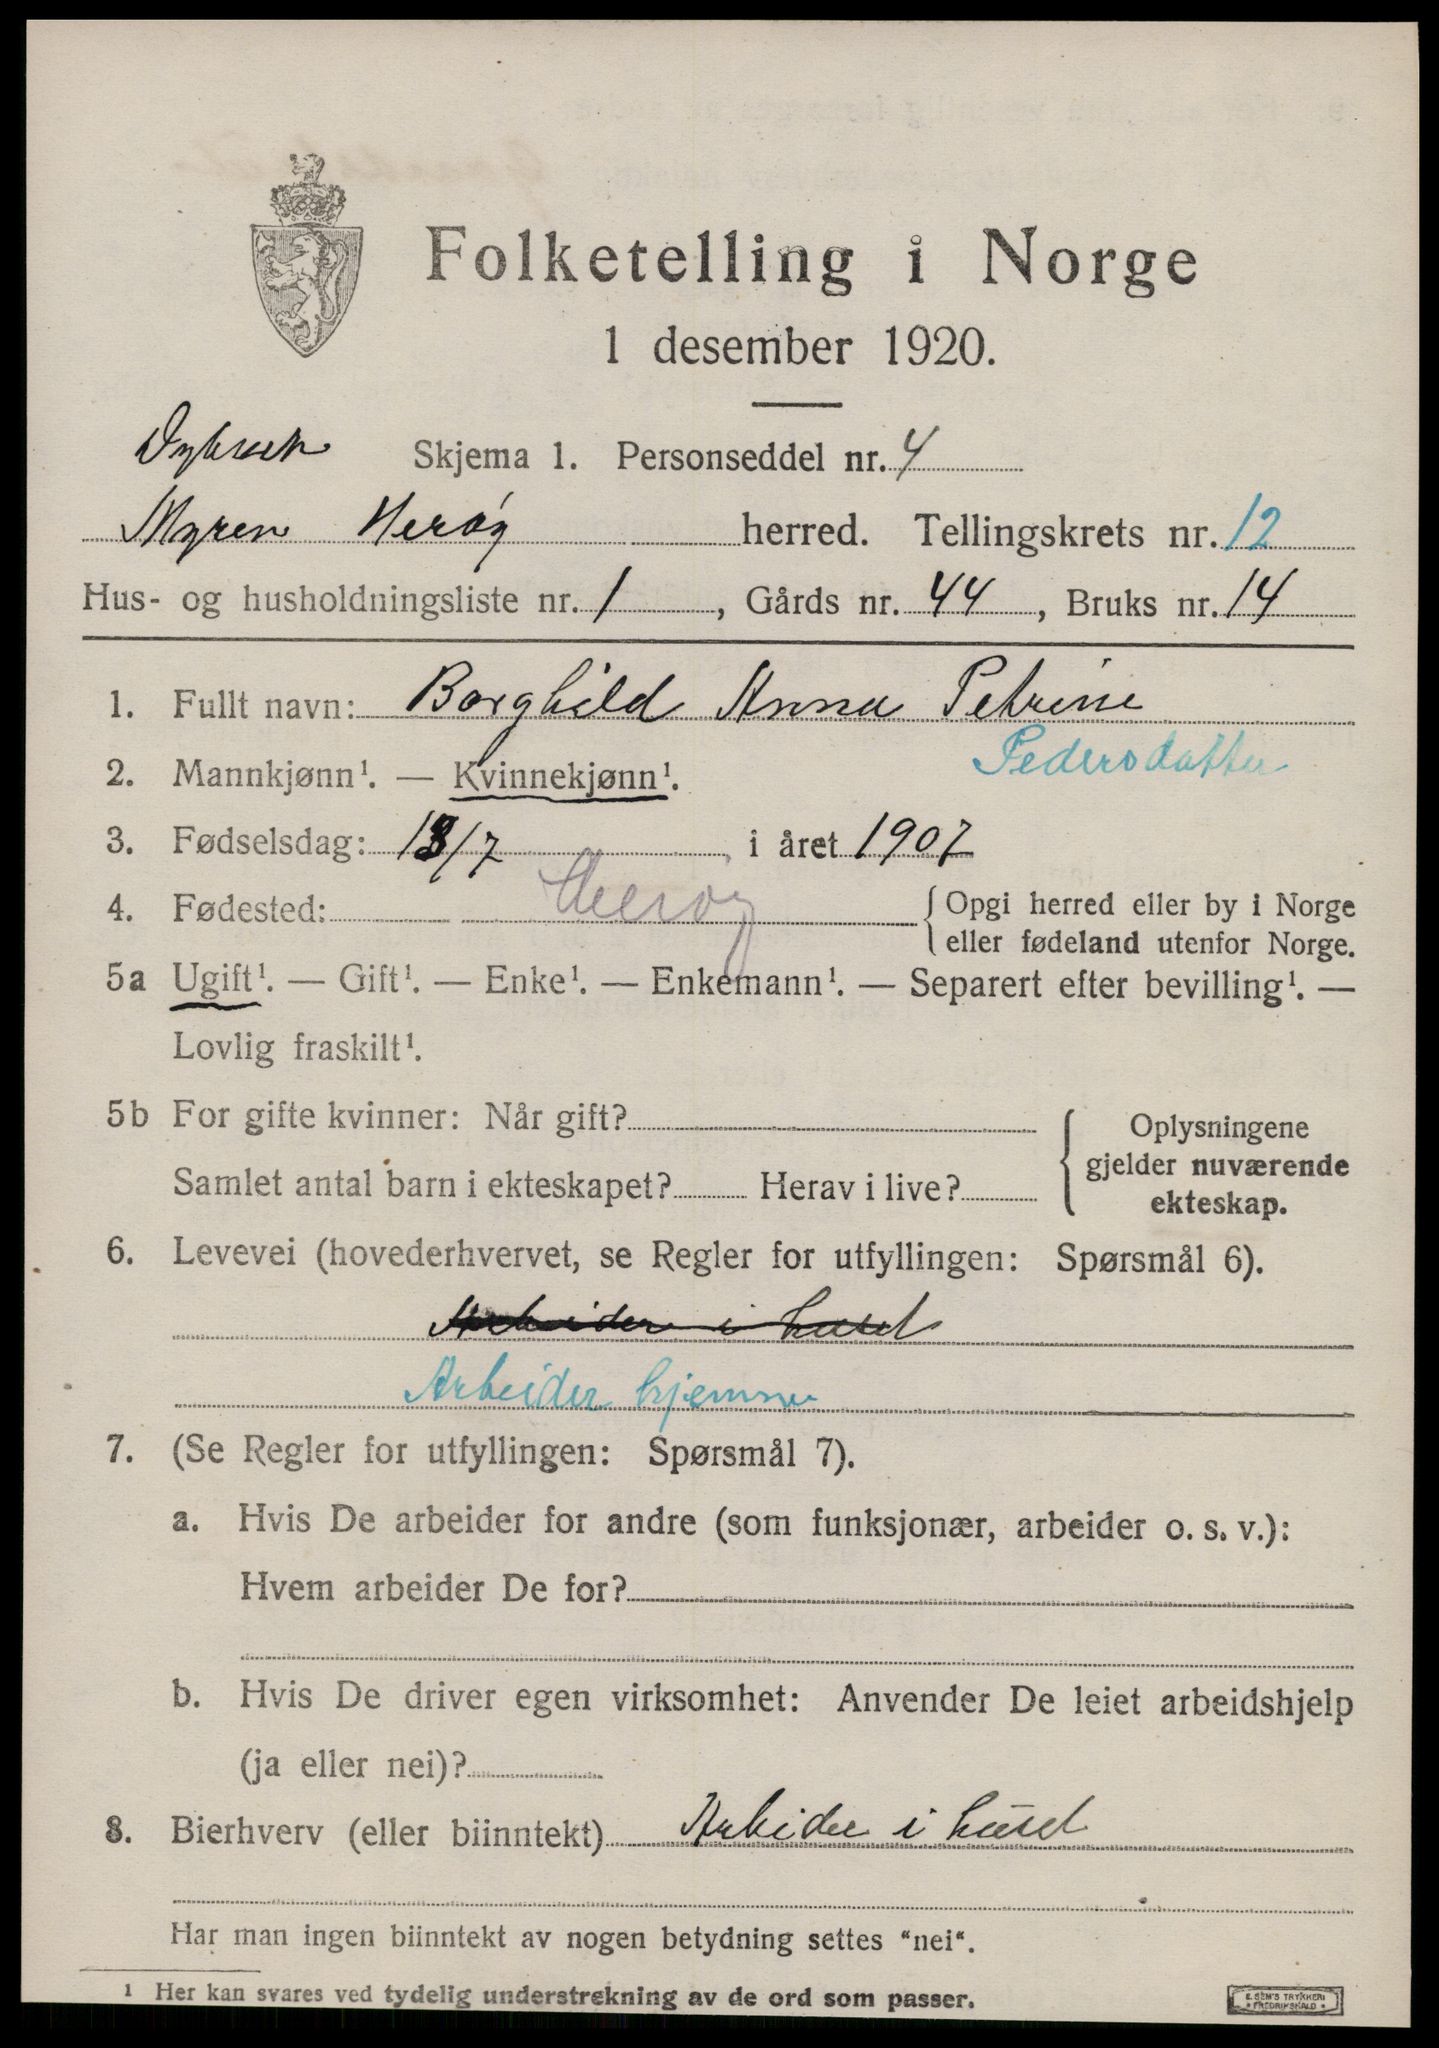 Folketelling i Norge
1 desember 1920.
Skjema 1. Personseddel nr. 4
Myren Herøy herred. Tellingskrets nr. 12
Hus- og husholdningsliste nr. 1, Gårds nr. 44, Bruks nr. 14
1. Fullt navn: Borghild Anna Petrine
Pedersdatter
2. Mannkjønn¹. — Kvinnekjønn¹.
3. Fødselsdag: 13/7, i året 1907
4. Fødested: Herøy { Opgi herred eller by i Norge
eller fødeland utenfor Norge.
5a Ugift¹. — Gift¹. — Enke¹. — Enkemann¹. — Separert efter bevilling¹. —
Lovlig fraskilt¹.
5b For gifte kvinner: Når gift? { Oplysningene
gjelder nuværende
Samlet antal barn i ekteskapet? Herav i live? ekteskap.
6. Levevei (hovederhvervet, se Regler for utfyllingen: Spørsmål 6).
Arbeider i huset
Arbeider hjemme
7. (Se Regler for utfyllingen: Spørsmål 7).
a. Hvis De arbeider for andre (som funksjonær, arbeider o. s. v.):
Hvem arbeider De for?
b. Hvis De driver egen virksomhet: Anvender De leiet arbeidshjelp
(ja eller nei)?
8. Bierhverv (eller biinntekt) Arbeider i huset
Har man ingen biinntekt av nogen betydning settes "nei".
1 Her kan svares ved tydelig understrekning av de ord som passer.
E. SEM'S TRYKKERI
• FREDRIKSHALD •